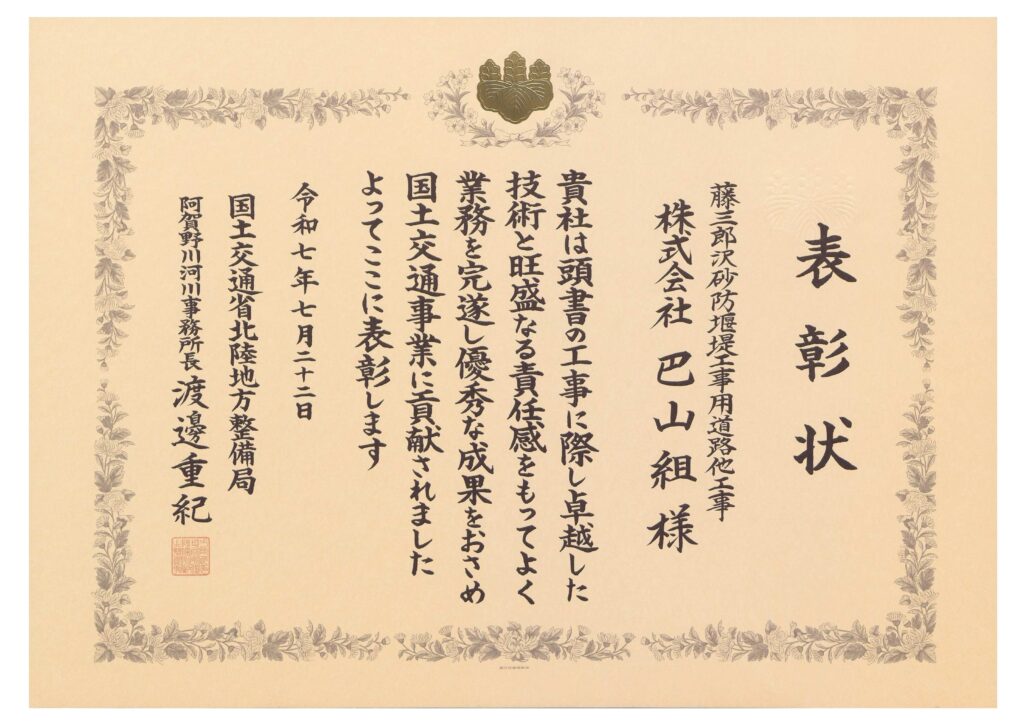 表彰状
藤三郎沢砂防堰堤工事用道路他工事
株式会社 巴山組 様
貴社は頭書の工事に際し卓越した
技術と旺盛なる責任感をもってよく
業務を完遂し優秀な成果をおさめ
国土交通事業に貢献されました
よってここに表彰します
令和七年七月二十二日
国土交通省北陸地方整備局
阿賀野川河川事務所長 渡邊重紀